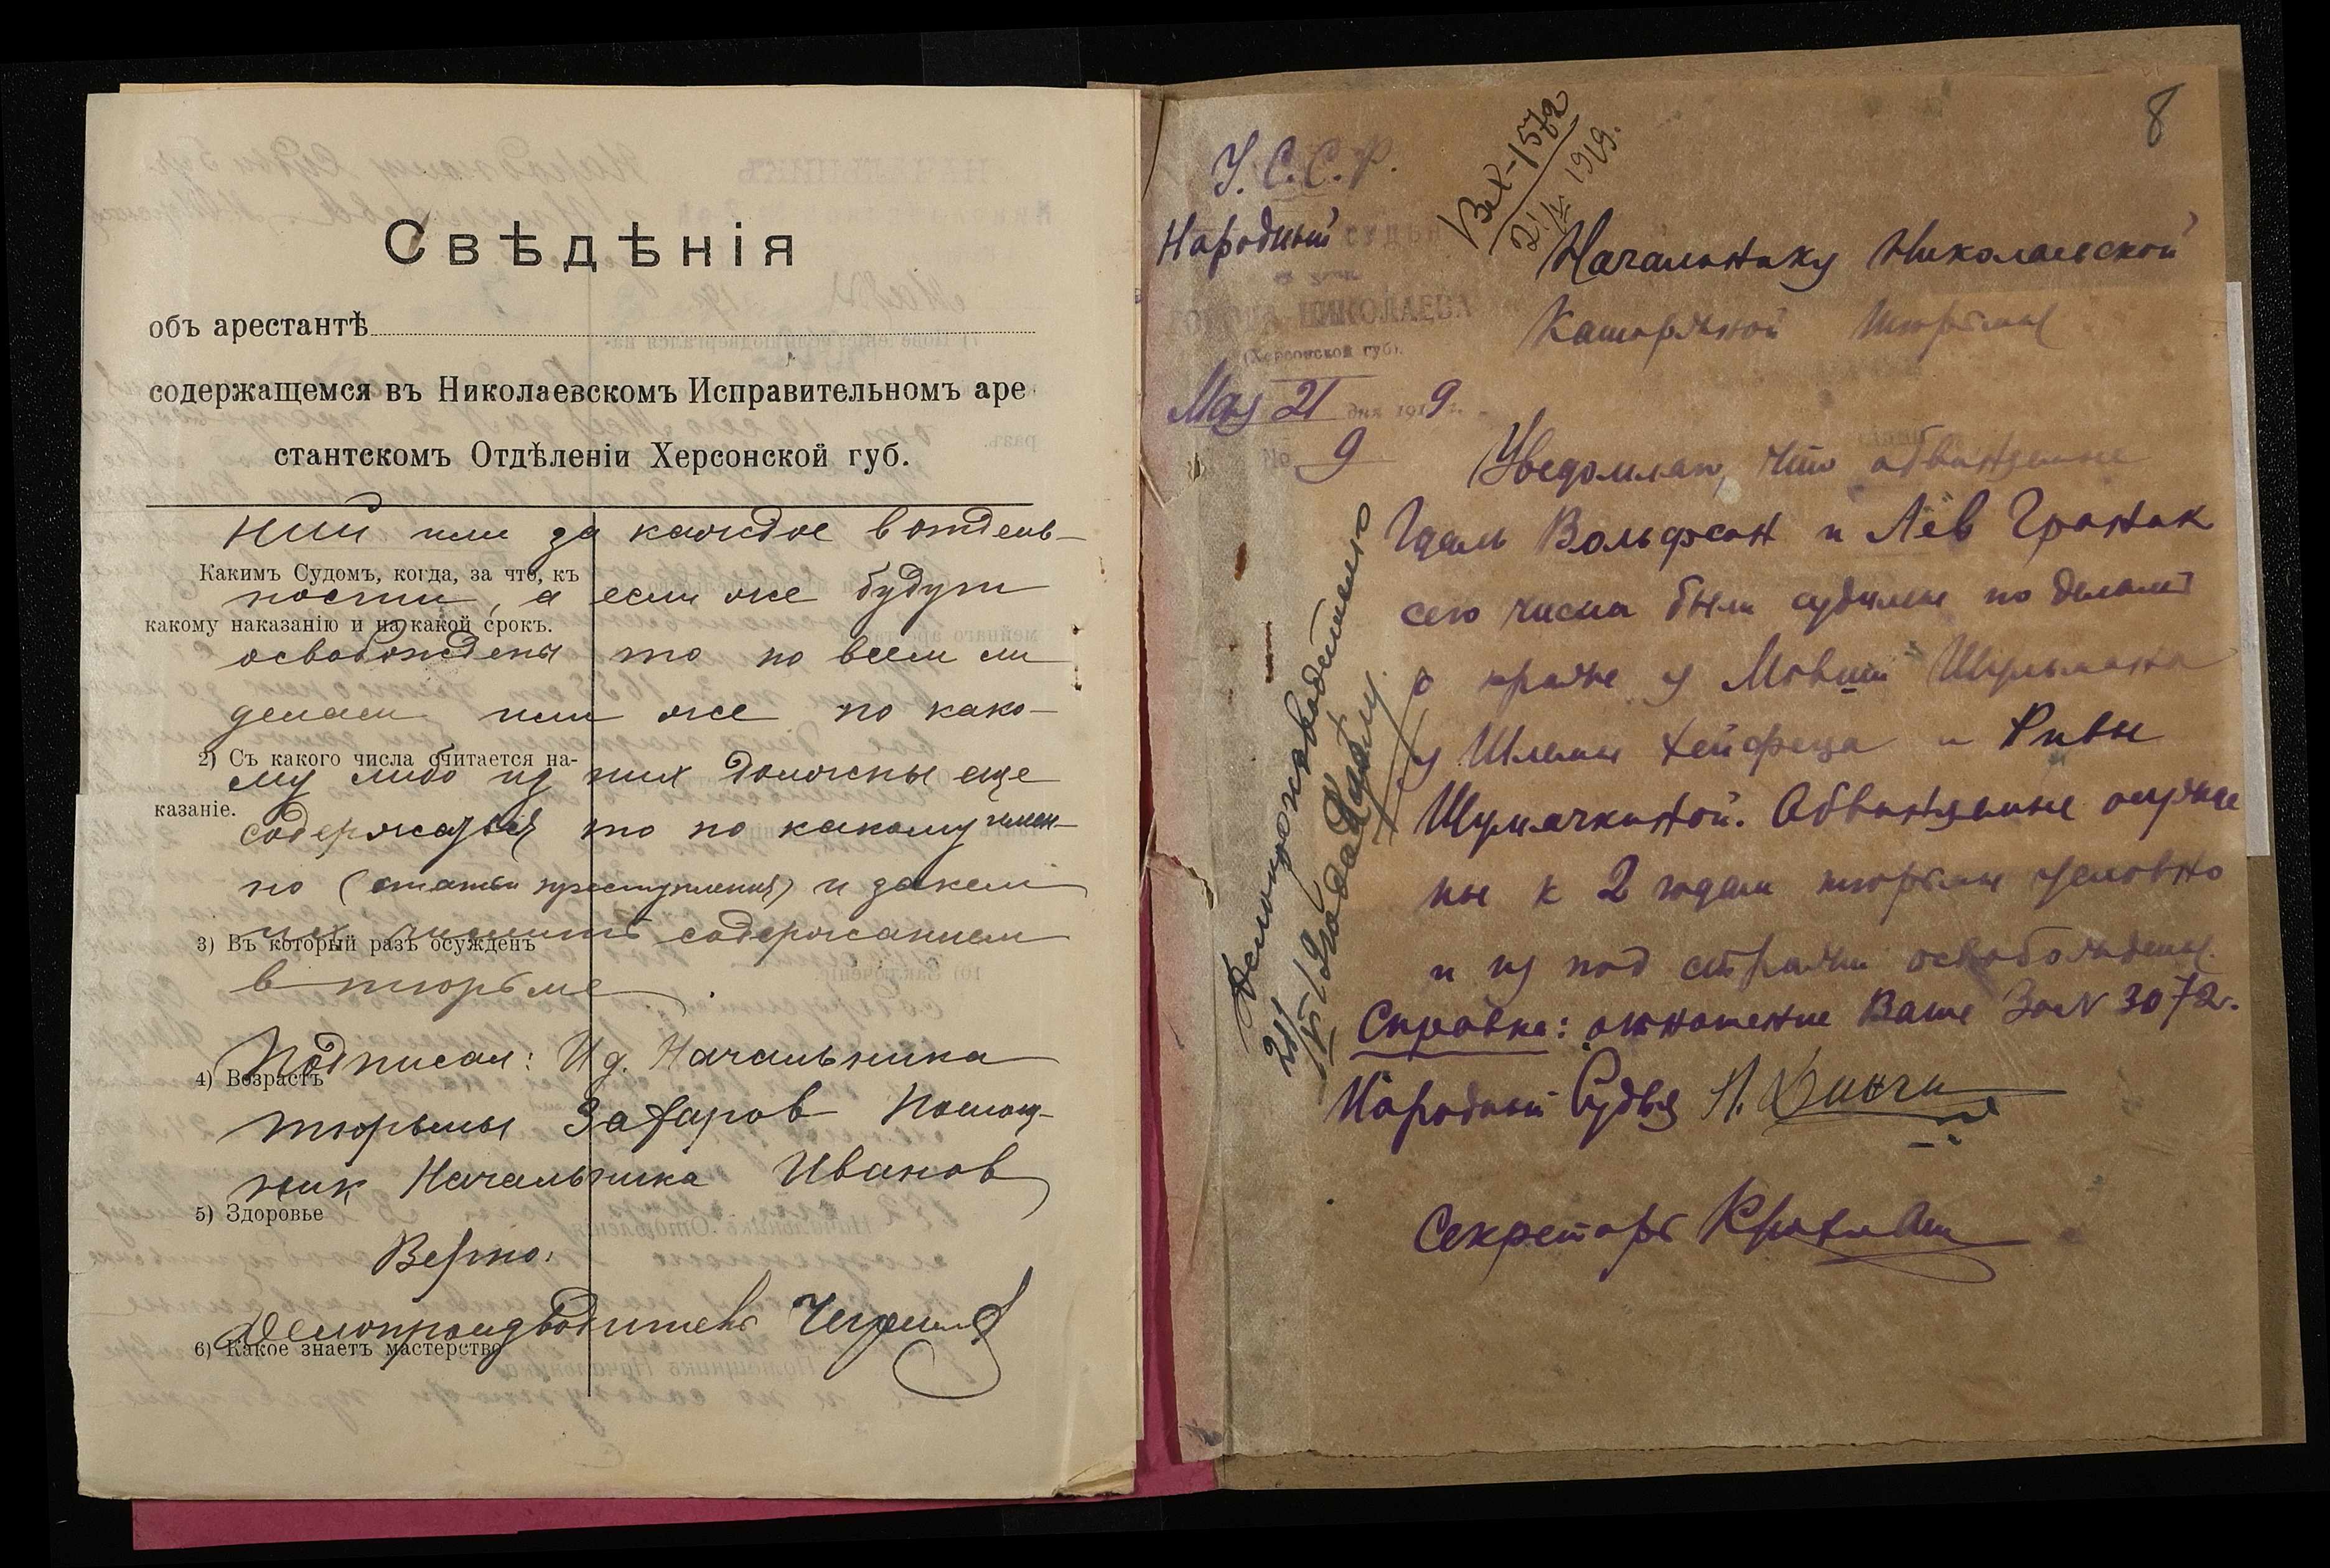 Свѣдѣнія
объ арестантѣ
содержащемся въ Николаевскомъ Исправительномъ аре
стантскомъ Отдѣленіи Херсонской губ.
ний или за каждое в отдель-
Какимъ Судомъ, когда, за что, къ
ности, а если же будут
какому наказанію и на какой срокъ.
освобождены то по всем ли
делам или же по како-
2) Съ какого числа считается на-
му либо из них должны еще
казаніе.
содержаться то по какому имен-
но (статьи преступления) и за кем
3) Въ который разъ осужденъ
их числить содержанием
в тюрьме.
Подписал: И д. Начальника
4) Возрастъ
тюрьмы Захаров Помощ-
ник Начальника Иванов
5) Здоровье
Верно:
Делопроизводитель
6) Какое знаетъ мастерство
8
У. С. С. Р.
Вх-1572
21/V 1919.
Народный СУДЬЯ
ГОРОДА НИКОЛАЕВА
(Херсонской губ).
Мая 21 дня 1919 г.
№ 9
Начальнику Николаевской
Каторжной тюрьмы
Уведомляю, что обвиняемые
Гдаль Вольфсон и Лёв Гранак
сего числа были судимы по делам
о краже у Мовши Шульмана
у Шлемы Хейфеца и Ривы
Шумячкиной. Обвиняемые осужде
ны к 2 годам тюрьмы условно
и из под стражи освобождены.
Справка: отношение Ваше За № 3072.
Народный Судья
Секретарь
Делопроизводителю
21/V